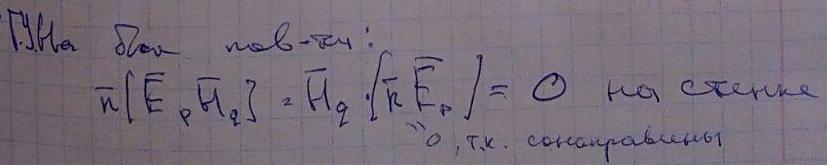 Г.У. На бок пов-ти:
n̄[Ē_p H̄_q] = H̄_q·[n̄ Ē_p] = 0 на стенке
"0, т.к. сонаправлены